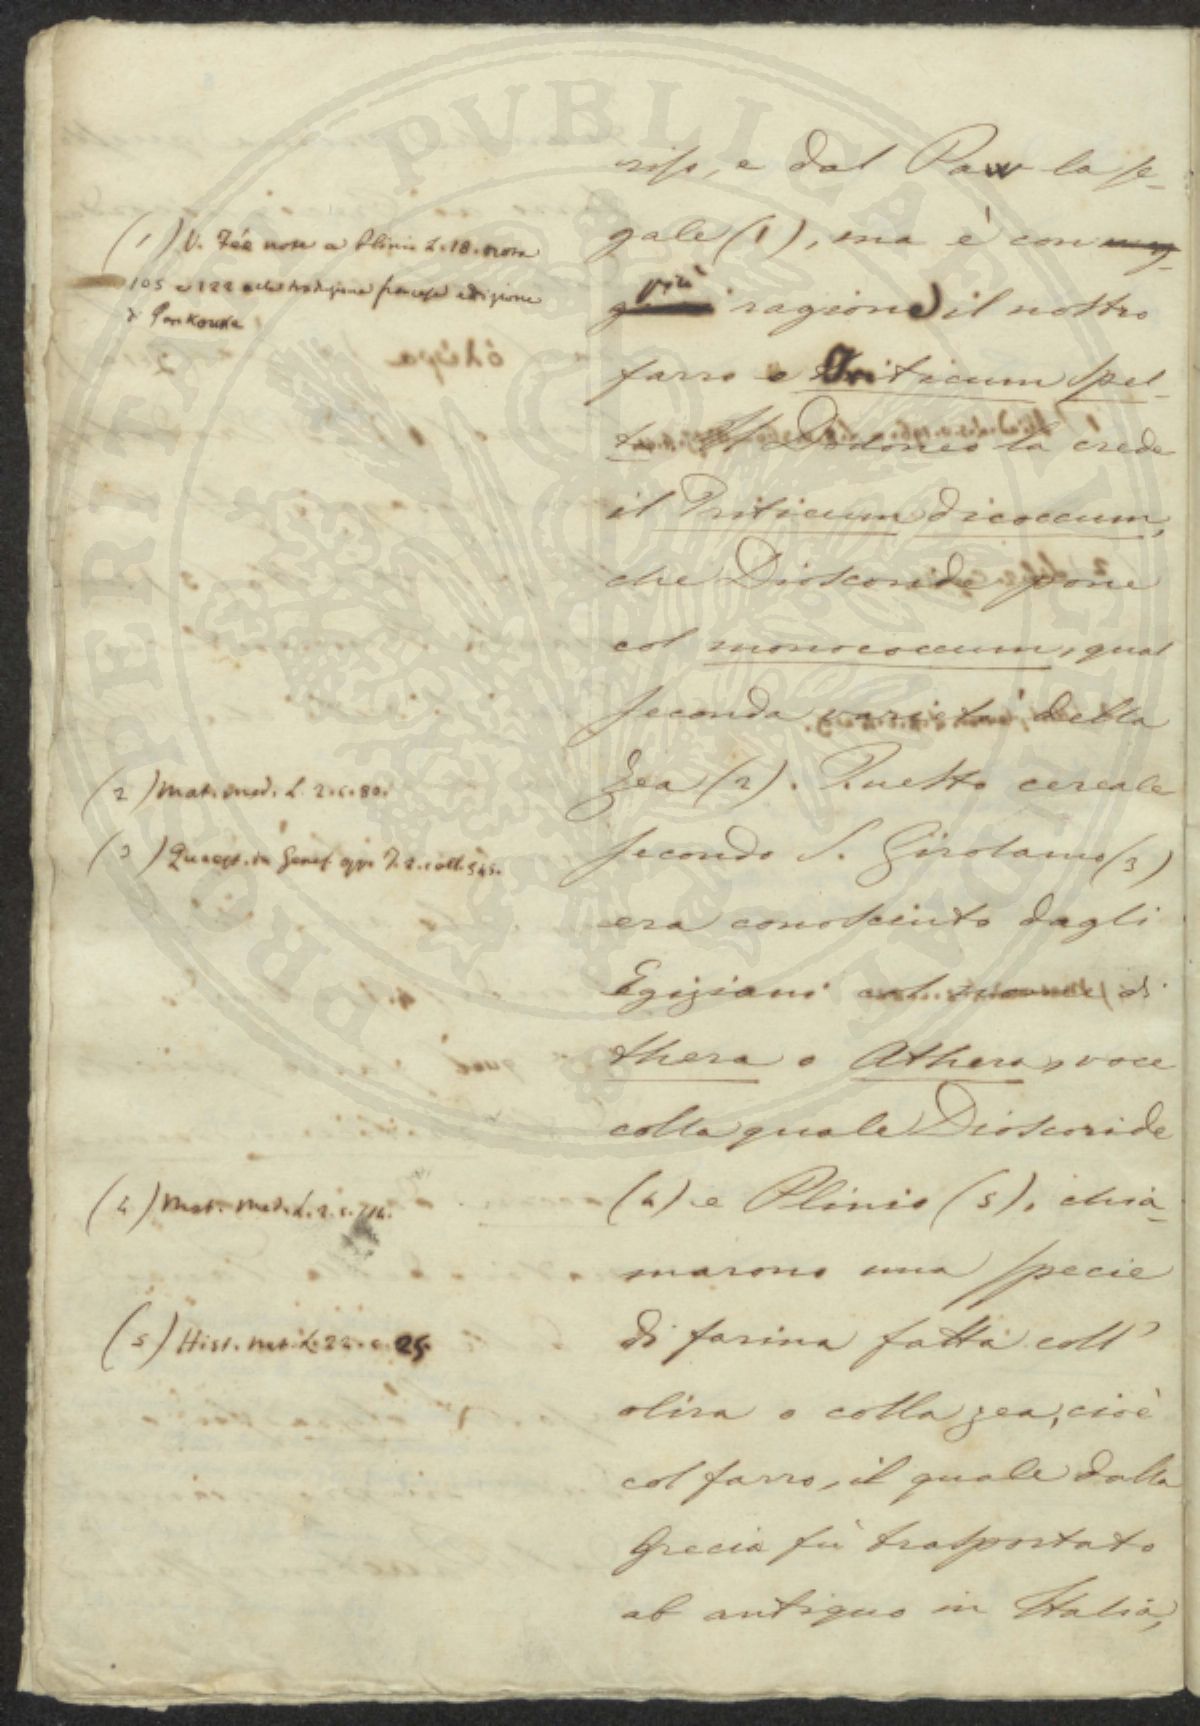 riso, e dal Paw la se-
gale (1), ma è con
più ragione il nostro
farro o Triticum spel-
ta. Il Dodoneo la crede
il Triticum dicoccum,
che Dioscoride pone
col monococcum, qual
seconda varietà della
zea (2). Questo cereale
secondo S. Girolamo (3)
era conosciuto dagli
Egiziani col nome di
thera o Athera, voce
colla quale Dioscoride
(4) e Plinio (5), chia-
marono una specie
di farina fatta coll'
olira o colla zea, cioè
col farro, il quale dalla
Grecia fù trasportato
ab antiquo in Italia,
(1) V. Fée note a Plinio L. 18. nota
105 e 122 nella traduzione francese edizione
di Pankouke
(2) Mat. med. L. 2. c. 80.
(3) Quaest. in Genes. opp. T. 2. coll. 545.
(4) Mat. med. L. 2. c. 114.
(5) Hist. nat. L. 22. c. 25.
PROSPERITATI PUBLICAE